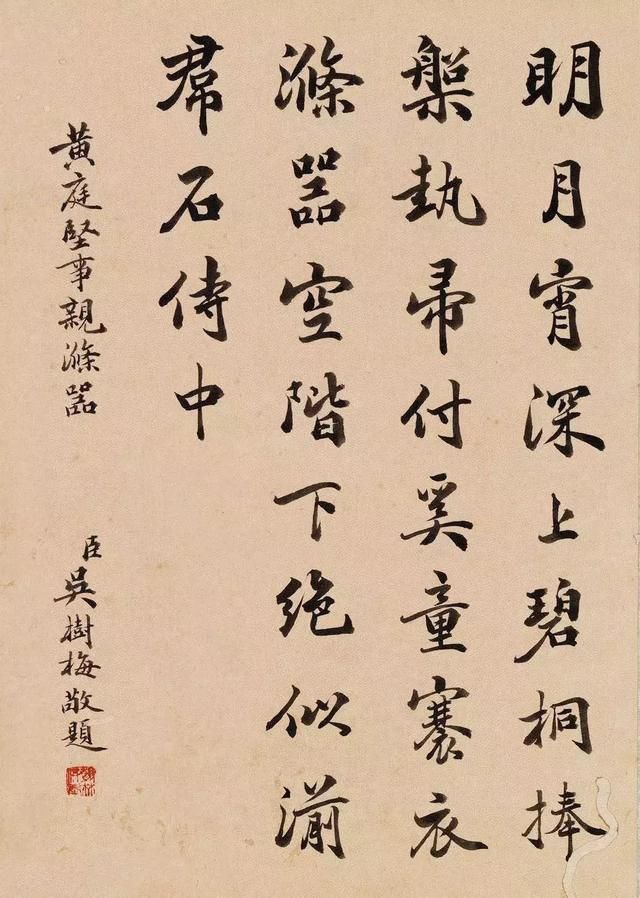 明月宵深上碧桐捧
槃執帚付奚童褰衣
滌器空階下絶似湔
帬石侍中
黄庭堅事親滌器
臣吳樹梅敬題